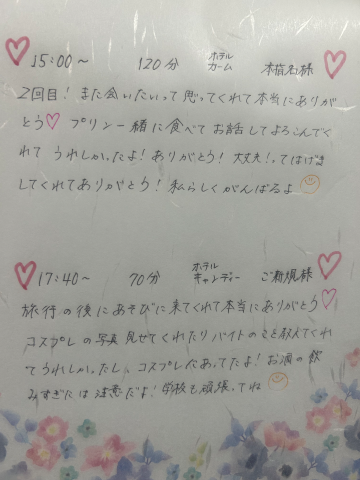 15:00～ 120分 ホテル カーム 本指名様
2回目！また会いたいって思ってくれて本当にありが
とう♡ プリン一緒に食べてお話してよろこんでく
れてうれしかったよ！ありがとう！大丈夫！ってはげま
してくれてありがとう！私らしくがんばるよ
17:40～ 70分 ホテル キャンディー ご新規様
旅行の後にあそびに来てくれて本当にありがとう♡
コスプレの写真見せてくれたりバイトのこと教えてくれ
てうれしかったし、コスプレにあってたよ！お酒の飲
みすぎには注意だよ！学校も頑張ってね